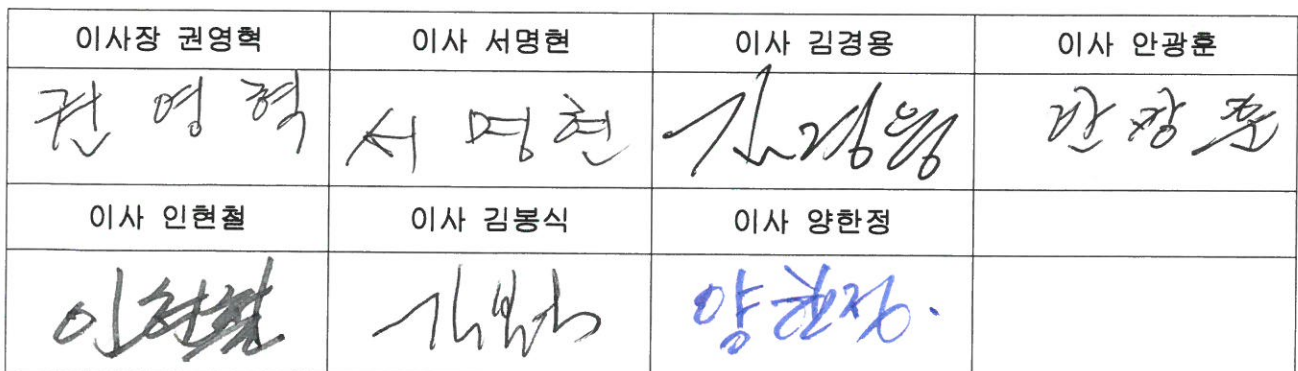 이사장 권영혁 이사 서명현 이사 김경용 이사 안광훈
권 영 혁 서 명 현 김경용 안 광 훈
이사 인현철 이사 김봉식 이사 양한정
인현철 김봉식 양한정.